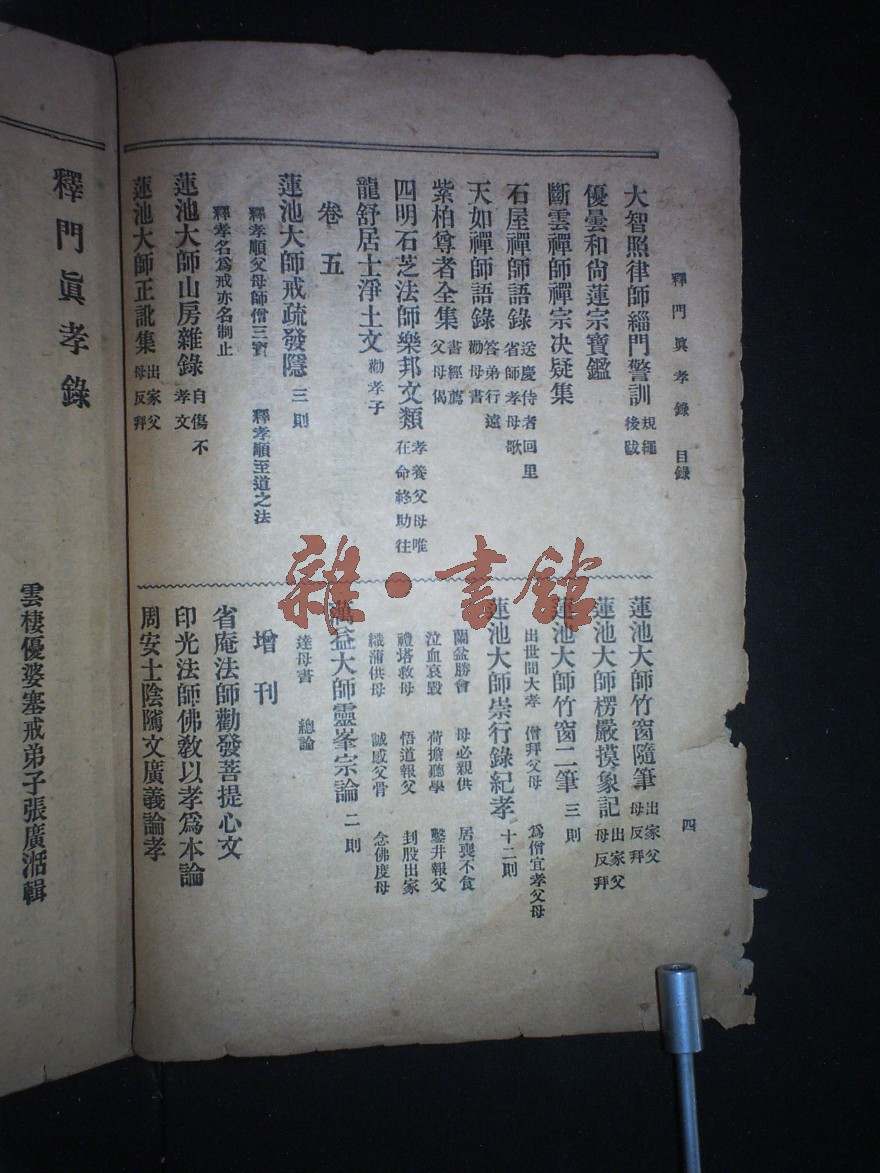 釋門眞孝錄 目錄 四
大智照律師緇門警訓 規繩後跋
優曇和尙蓮宗寶鑑
斷雲禪師禪宗決疑集
石屋禪師語錄 送慶侍者回里省師孝母歌
天如禪師語錄 答弟行遠勸母書
紫柏尊者全集 書經薦父母偈
四明石芝法師樂邦文類 孝養父母唯在命終助往
龍舒居士淨土文 勸孝子
卷五
蓮池大師戒疏發隱 三則
釋孝順父母師僧三寶 釋孝順至道之法
釋孝名爲戒亦名制止
蓮池大師山房雜錄 自傷不孝文
蓮池大師正訛集 出家父母反拜
蓮池大師竹窗隨筆 出家父母反拜
蓮池大師楞嚴摸象記 出家父母反拜
蓮池大師竹窗二筆 三則
出世間大孝 僧拜父母 爲僧宜孝父母
蓮池大師崇行錄紀孝 十二則
蘭盆勝會 母必親供 居喪不食
泣血哀毀 荷擔聽學 鑿井報父
禮塔救母 悟道報父 刲股出家
織蒲供母 誠感父骨 念佛度母
蕅益大師靈峯宗論 二則
達母書 總論
增刊
省庵法師勸發菩提心文
印光法師佛敎以孝爲本論
周安士陰隲文廣義論孝
釋門眞孝錄
雲棲優婆塞戒弟子張廣湉輯
雜·書館